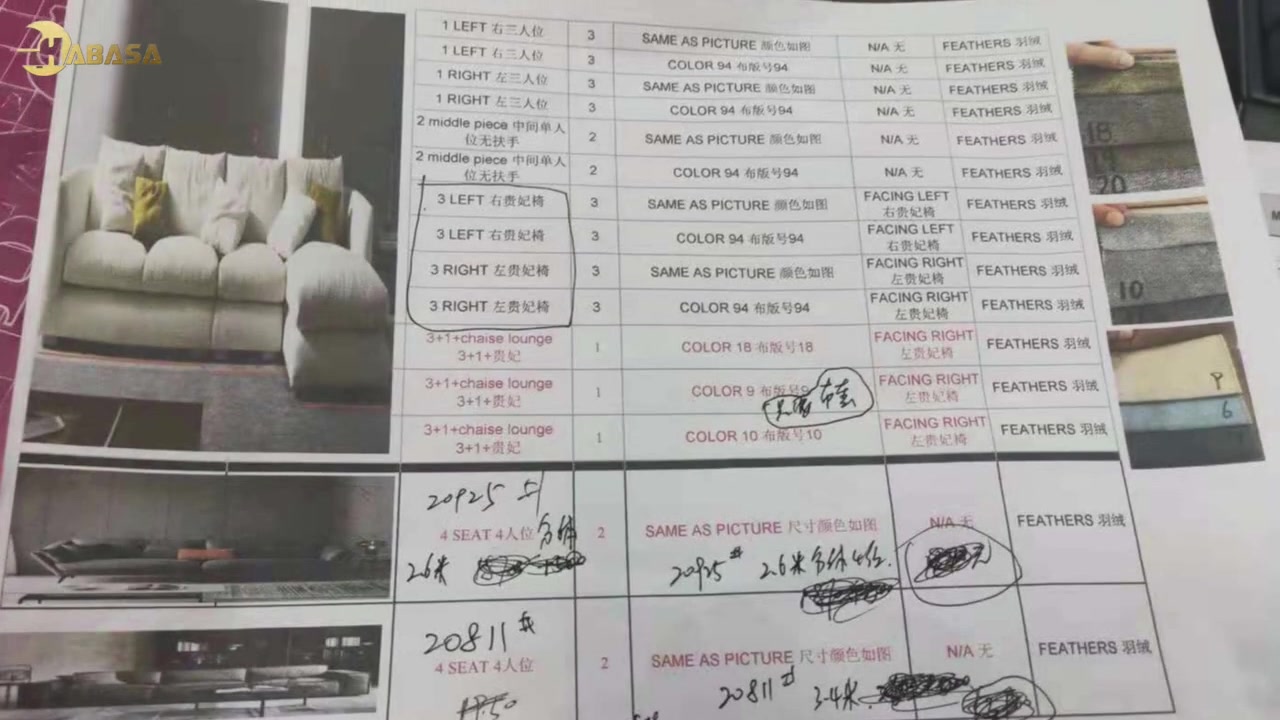 HABASA
1 LEFT 右三人位 3 SAME AS PICTURE 颜色如图 N/A 无 FEATHERS 羽绒
1 LEFT 右三人位 3 COLOR 94 布版号94 N/A 无 FEATHERS 羽绒
1 RIGHT 左三人位 3 SAME AS PICTURE 颜色如图 N/A 无 FEATHERS 羽绒
1 RIGHT 左三人位 3 COLOR 94 布版号94 N/A 无 FEATHERS 羽绒
2 middle piece 中间单人
位无扶手 2 SAME AS PICTURE 颜色如图 N/A 无 FEATHERS 羽绒
2 middle piece 中间单人
位无扶手 2 COLOR 94 布版号94 N/A 无 FEATHERS 羽绒
3 LEFT 右贵妃椅 3 SAME AS PICTURE 颜色如图 FACING LEFT
右贵妃椅 FEATHERS 羽绒
3 LEFT 右贵妃椅 3 COLOR 94 布版号94 FACING LEFT
右贵妃椅 FEATHERS 羽绒
3 RIGHT 左贵妃椅 3 SAME AS PICTURE 颜色如图 FACING RIGHT
左贵妃椅 FEATHERS 羽绒
3 RIGHT 左贵妃椅 3 COLOR 94 布版号94 FACING RIGHT
左贵妃椅 FEATHERS 羽绒
3+1+chaise lounge
3+1+贵妃 1 COLOR 18 布版号18 FACING RIGHT
左贵妃椅 FEATHERS 羽绒
3+1+chaise lounge
3+1+贵妃 1 COLOR 9 布版号9 FACING RIGHT
左贵妃椅 FEATHERS 羽绒
布套
3+1+chaise lounge
3+1+贵妃 1 COLOR 10 布版号10 FACING RIGHT
左贵妃椅 FEATHERS 羽绒
18
19
20
10
9
6
20925#
4 SEAT 4人位 2 SAME AS PICTURE 尺寸颜色如图 N/A 无 FEATHERS 羽绒
2.6米 20925# 2.6米 无
20811#
4 SEAT 4人位 2 SAME AS PICTURE 尺寸颜色如图 N/A 无 FEATHERS 羽绒
20811# 3.4米